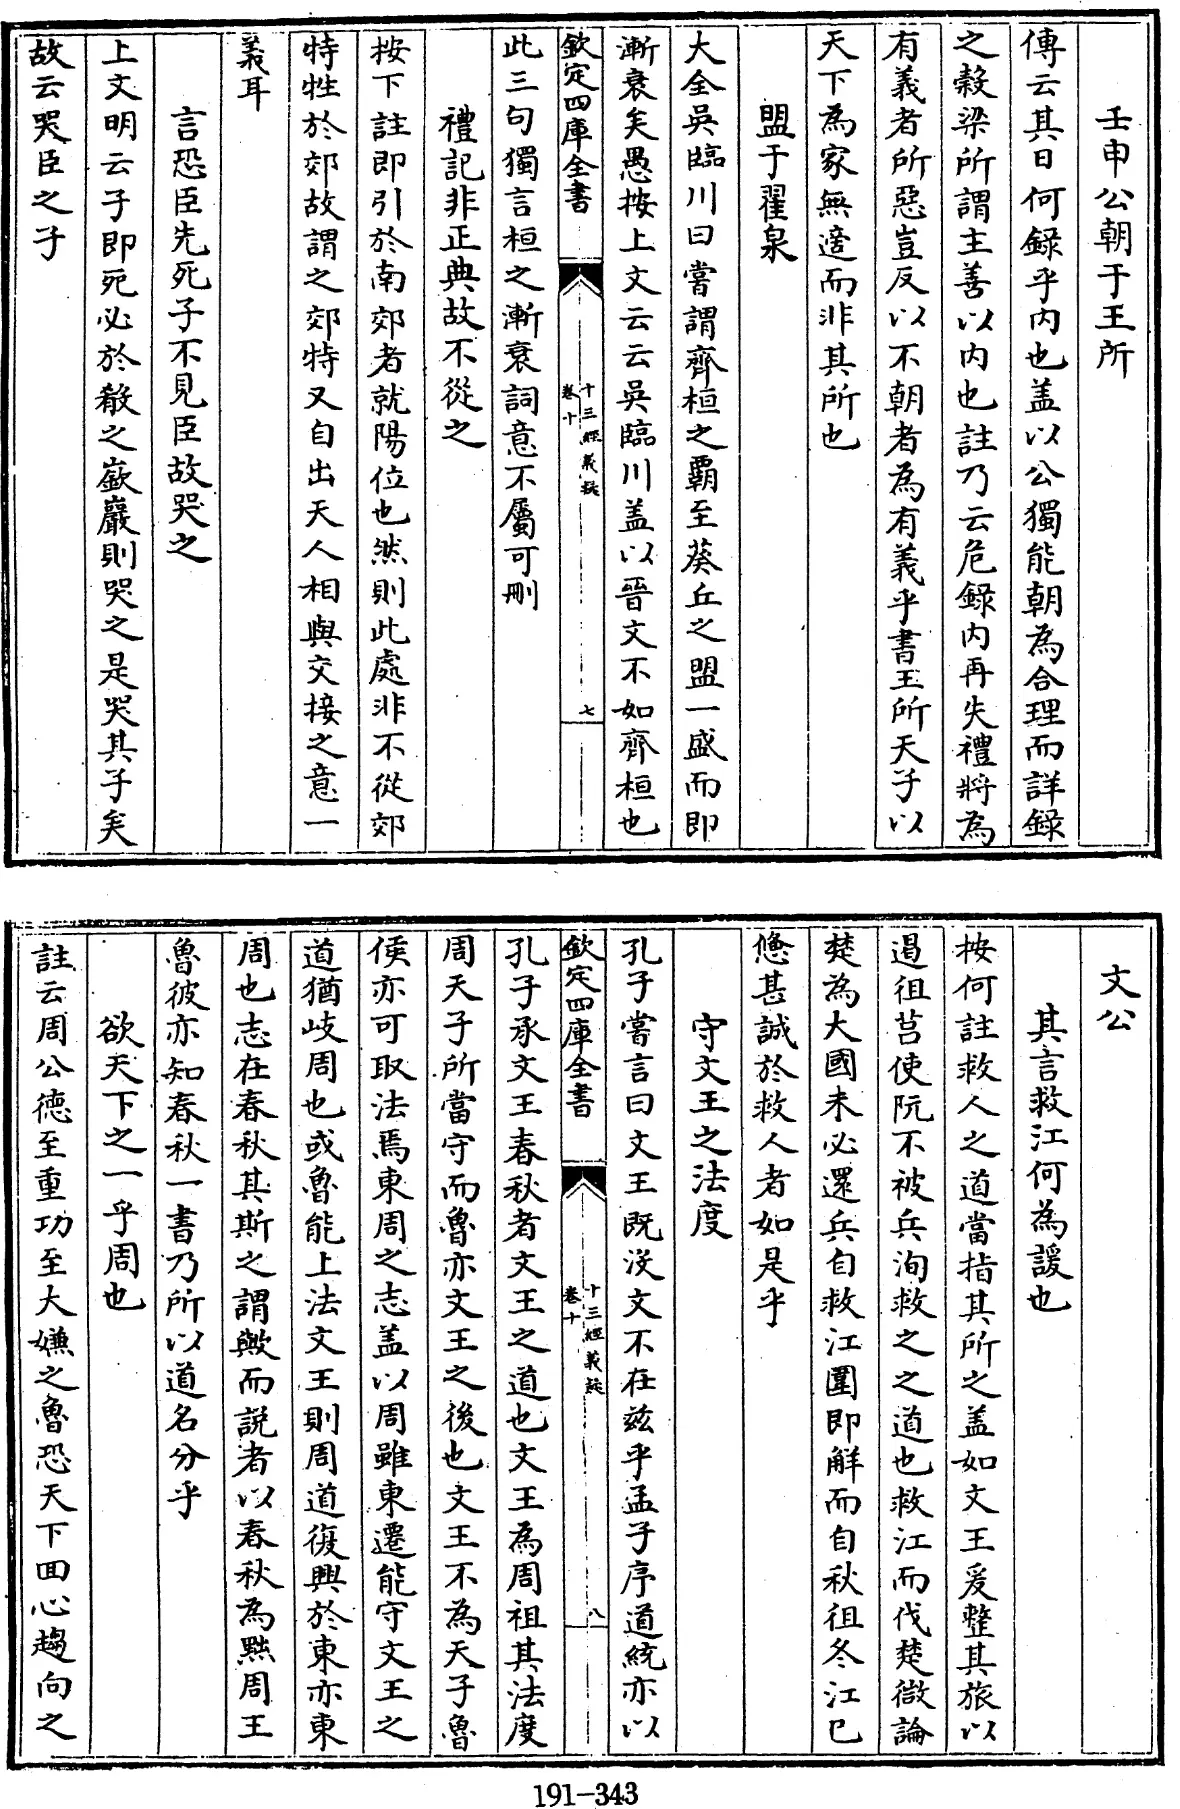 壬申公朝于王所
傳云其日何録乎内也盖以公獨能朝為合理而詳録
之穀梁所謂主善以内也註乃云危録内再失禮將為
有義者所惡豈反以不朝者為有義乎書王所天子以
天下為家無適而非其所也
盟于翟泉
大全吳臨川曰嘗謂齊桓之霸至葵丘之盟一盛而即
漸衰矣愚按上文云云吳臨川盖以晉文不如齊桓也
欽定四庫全書
十三經義疑
卷十
七
此三句獨言桓之漸衰詞意不屬可刪
禮記非正典故不從之
按下註即引於南郊者就陽位也然則此處非不從郊
特牲於郊故謂之郊特又自出天人相與交接之意一
義耳
言恐臣先死子不見臣故哭之
上文明云子即死必於殽之嶔巖則哭之是哭其子矣
故云哭臣之子
文公
其言救江何為諼也
按何註救人之道當指其所之盖如文王爰整其旅以
遏徂莒使阮不被兵洵救之之道也救江而伐楚微論
楚為大國未必還兵自救江圍即解而自秋徂冬江已
憊甚誠於救人者如是乎
守文王之法度
孔子嘗言曰文王既沒文不在兹乎孟子序道統亦以
孔子承文王春秋者文王之道也文王為周祖其法度
欽定四庫全書
十三經義疑
卷十
八
周天子所當守而魯亦文王之後也文王不為天子魯
侯亦可取法焉東周之志盖以周雖東遷能守文王之
道猶岐周也或魯能上法文王則周道復興於東亦東
周也志在春秋其斯之謂歟而説者以春秋為黜周王
魯彼亦知春秋一書乃所以道名分乎
欲天下之一乎周也
註云周公德至重功至大嫌之魯恐天下回心趨向之
191-343